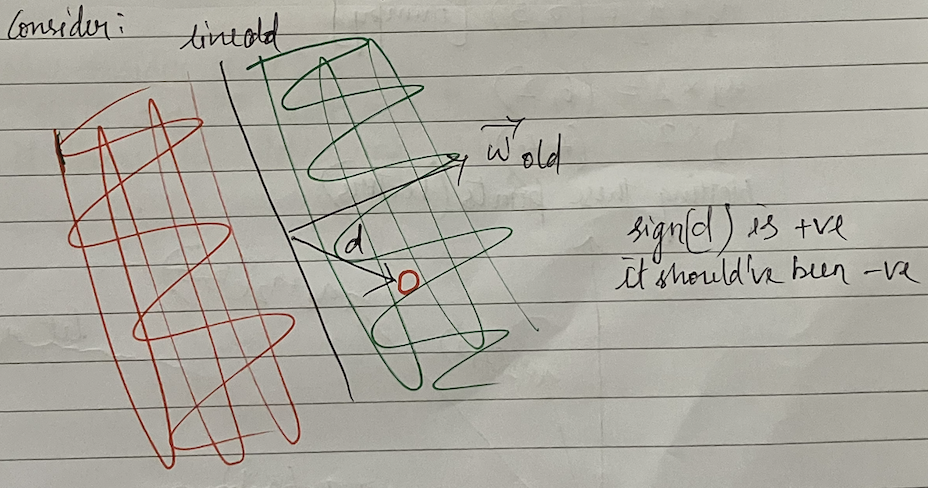 Consider:
line old
w⃗ old
d
sign(d) is +ve
it should've been -ve